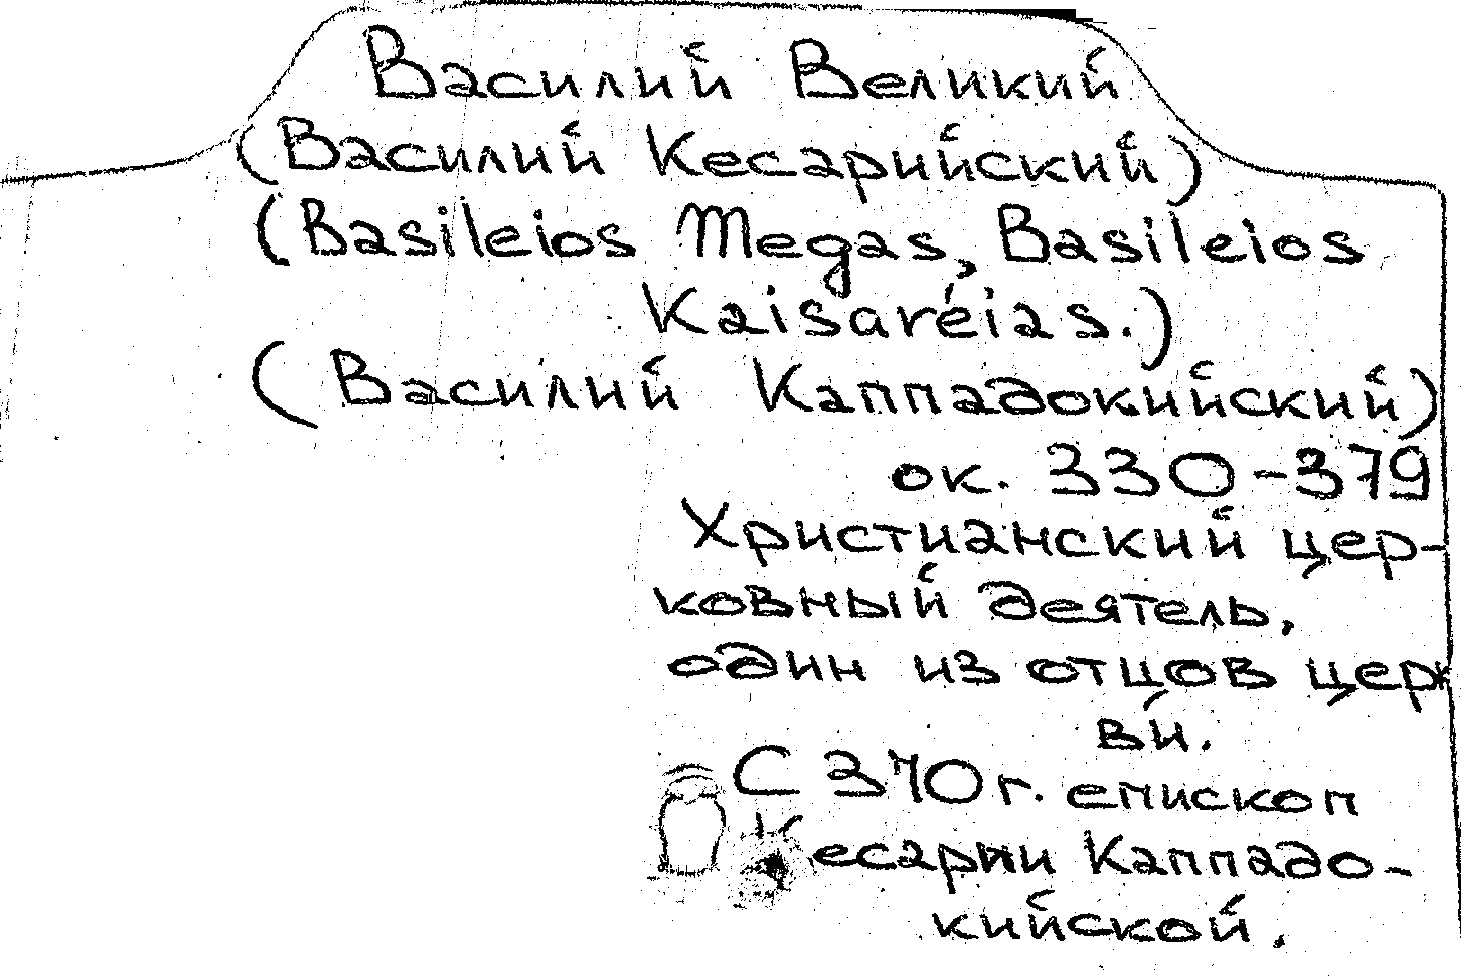 Василий Великий
(Василий Кесарийский)
(Basileios Megas, Basileios
Kaisaréias.)
(Василий Каппадокийский)
ок. 330-379
Христианский цер-
ковный деятель,
один из отцов церк
ви.
С 370 г. епископ
Кесарии Каппадо-
кийской.